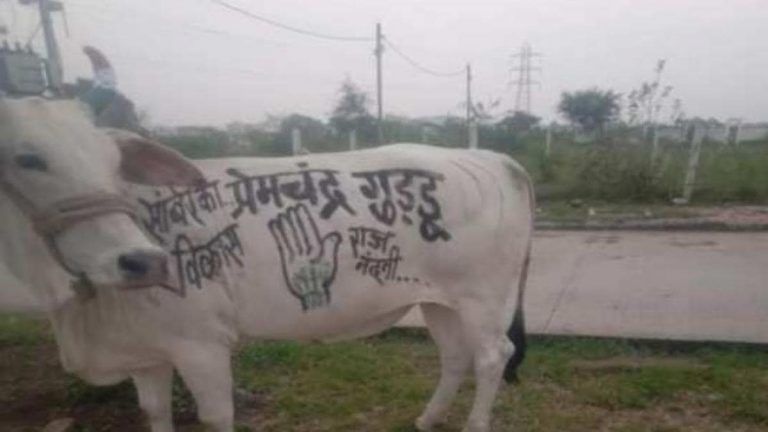 सांवेर का प्रेमचंद्र गुड्डू
विकास राज
नंदनी....